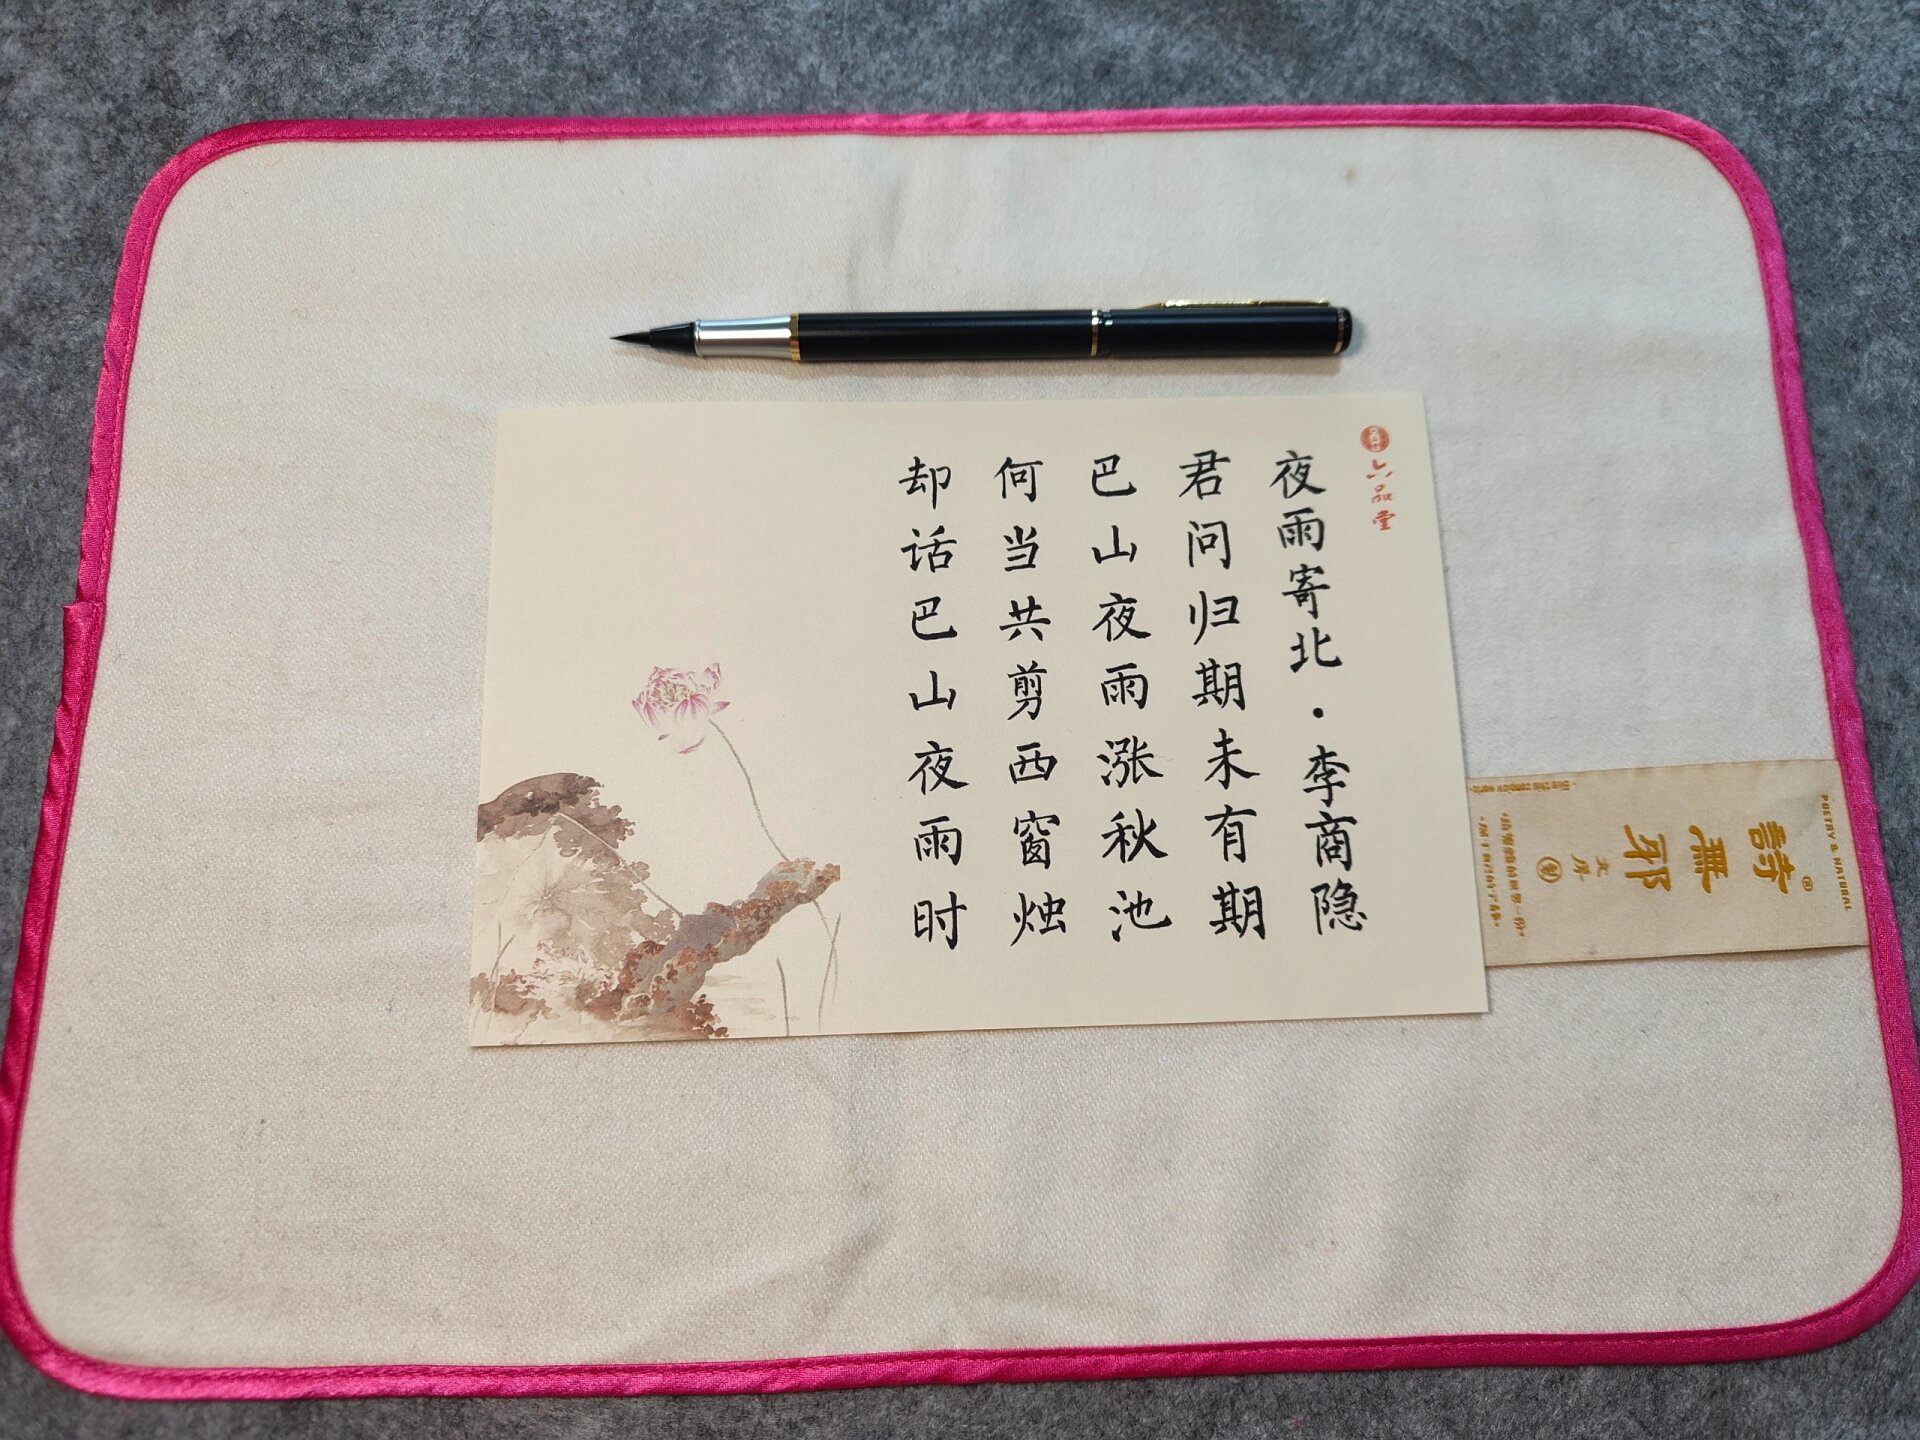 六品堂
夜雨寄北·李商隐
君问归期未有期
巴山夜雨涨秋池
何当共剪西窗烛
却话巴山夜雨时
POETRY & NATURAL
詩無邪